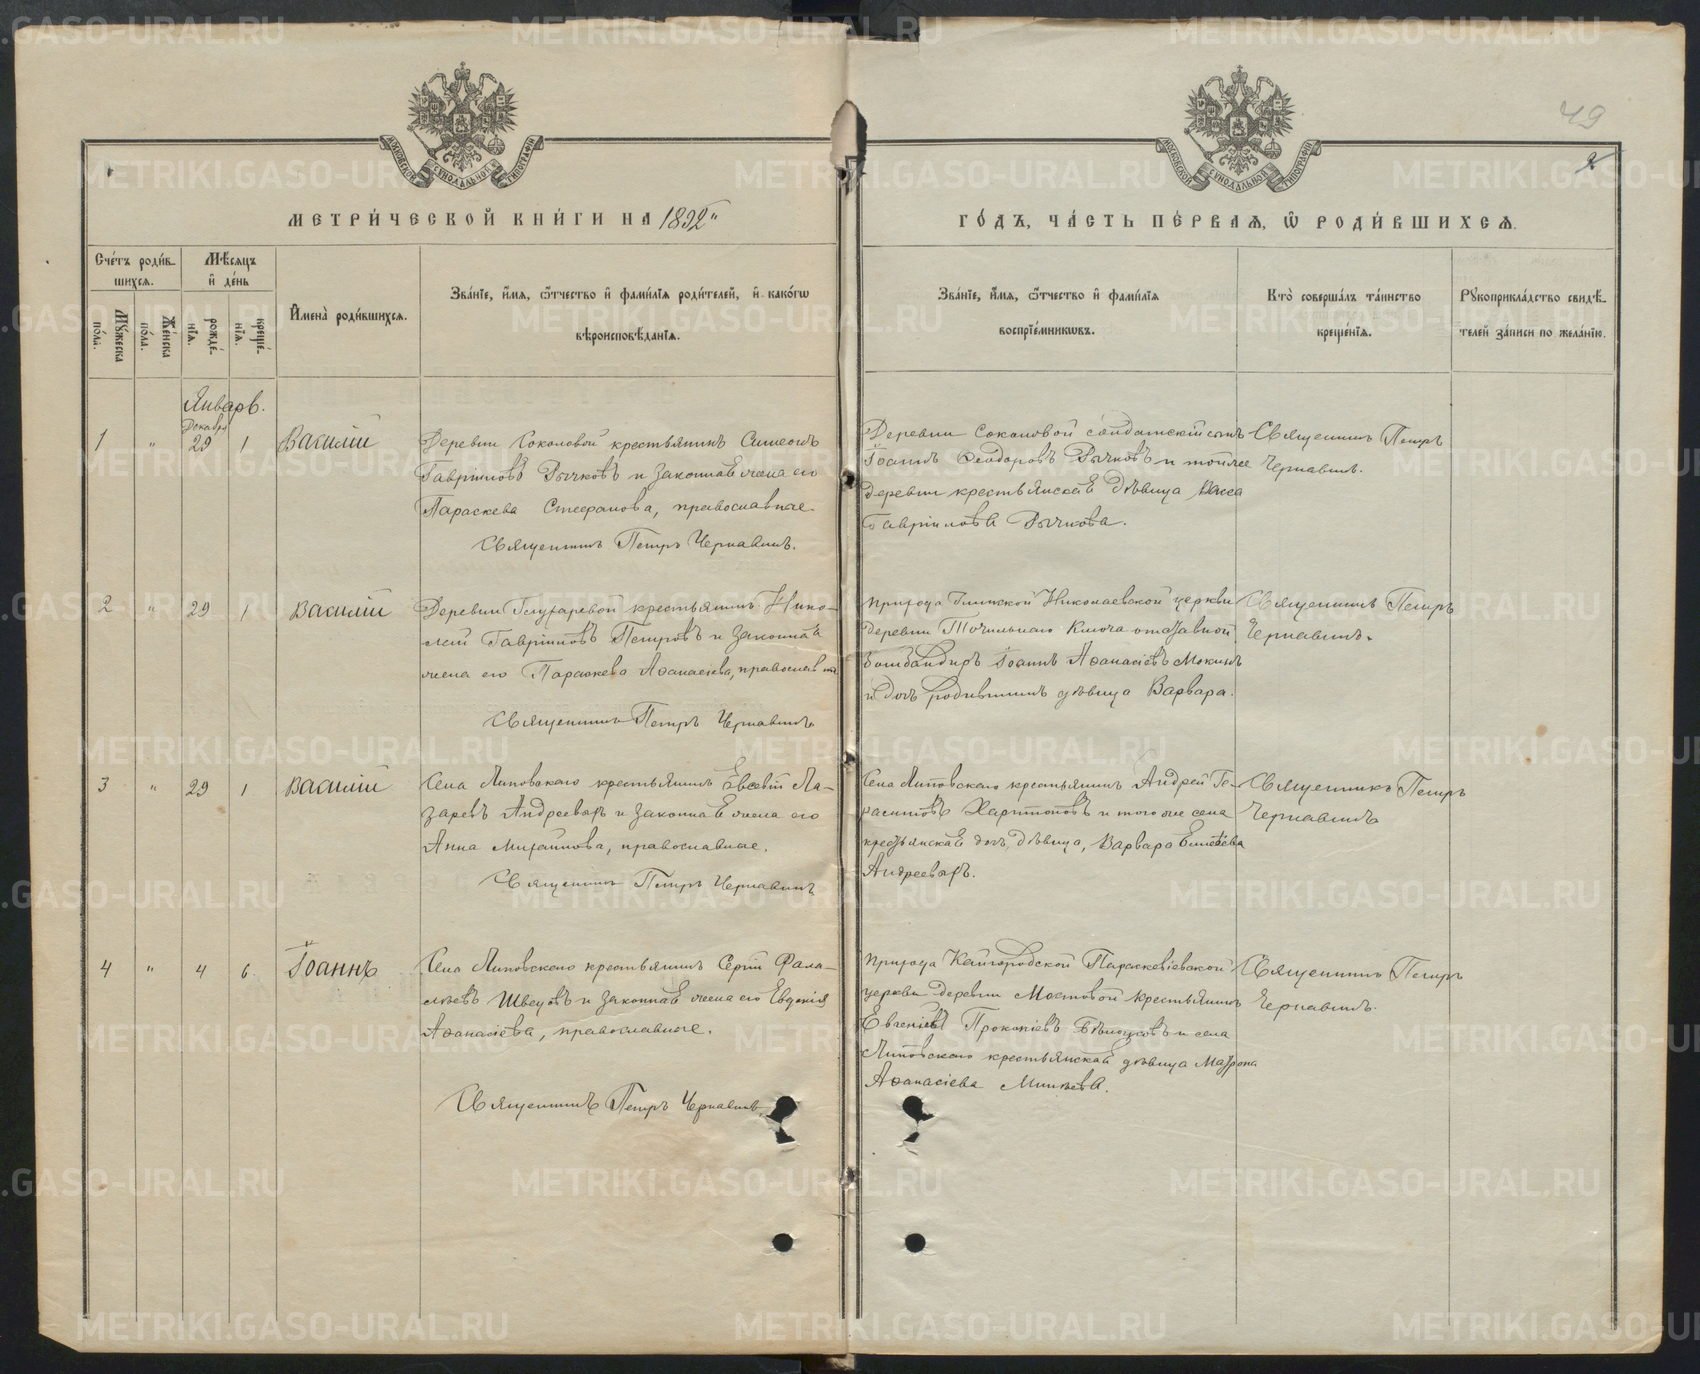 49
2
МОСКОВСКОЙ СѴНОДАЛЬНОЙ ТИПОГРАФІИ
МОСКОВСКОЙ СѴНОДАЛЬНОЙ ТИПОГРАФІИ
МЕТРИ́ЧЕСКОЙ КНИ́ГИ НА 1892"
ГО́ДЪ, ЧА́СТЬ ПЕ́РВАЯ, Ѡ РОДИ́ВШИХСЯ.
Сче́тъ роди́в-
шихся.
Мѣ́сяцъ
и҆ де́нь
Мꙋ́жеска
по́ла.
Же́нска
по́ла.
рожде́-
нїя.
креще́-
нїя.
И҆мена̀ роди́вшихся.
Зва́нїе, и҆́мя, ѻ҆́тчество и҆ фами́лїя роди́телей, и҆ како́гѡ
вѣроисповѣ́данїя.
Зва́нїе, и҆́мя, ѻ҆́тчество и҆ фами́лїя
воспрїе́мникѡвъ.
Кто̀ соверша́лъ та́инство
креще́нїя.
Рꙋкоприкла́дство свидѣ́-
телей за́писи по жела́нїю.
Январь.
Декабря
1 " 29 1 Василій
Деревни Соколовой крестьянинъ Симеонъ
Гавріиловъ Рычковъ и законная жена его
Параскева Стефанова, православные.
Священникъ Петръ Чернавинъ.
Деревни Соколовой солдатскій сынъ
Іоаннъ Феодоровъ Рычковъ и той же
деревни крестьянская дѣвица Васса
Гавріилова Рычкова.
Священникъ Петръ
Чернавинъ.
2 " 29 1 Василій
Деревни Глухаревой крестьянинъ Нико-
лай Гавріиловъ Петровъ и законная
жена его Параскева Аѳанасіева, православные
Священникъ Петръ Чернавинъ
Прихода Николаевской церкви
деревни Точильнаго Ключа отставной
бомбандиръ Іоаннъ Аѳанасіевъ Мокинъ
и дочь родившихъ дѣвица Варвара.
Священникъ Петръ
Чернавинъ.
3 " 29 1 Василій
Села Липовскаго крестьянинъ Евсевій Ла-
заревъ Андреевыхъ и законная жена его
Анна Михаилова, православные.
Священникъ Петръ Чернавинъ
Села Липовскаго крестьянинъ Андрей Ге-
расимовъ Харитоновъ и того же села
крестьянская дочь, дѣвица, Варвара
Андреевыхъ.
Священникъ Петръ
Чернавинъ
4 " 4 6 Іоаннъ
Села Липовскаго крестьянинъ Сергій Фала-
лѣевъ Швецовъ и законная жена его Евдокія
Аѳанасіева, православные.
Священникъ Петръ Чернавинъ
Прихода Кайгородской Параскевіевской
церкви деревни Мостовой крестьянинъ
Евгеній Прокопіевъ и села
Липовскаго крестьянская дѣвица Матрона
Аѳанасіева Минѣева.
Священникъ Петръ
Чернавинъ.
METRIKI.GASO-URAL.RU